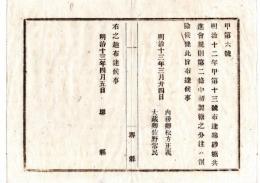 甲第六號
明治十二年甲第十三號布達
進會規則第二條中
除候條此旨布達候事
明治十三年三月廿四日
內務卿松方正義
大藏卿佐野常民
右之趣布達候事
明治十三年四月五日
堺縣